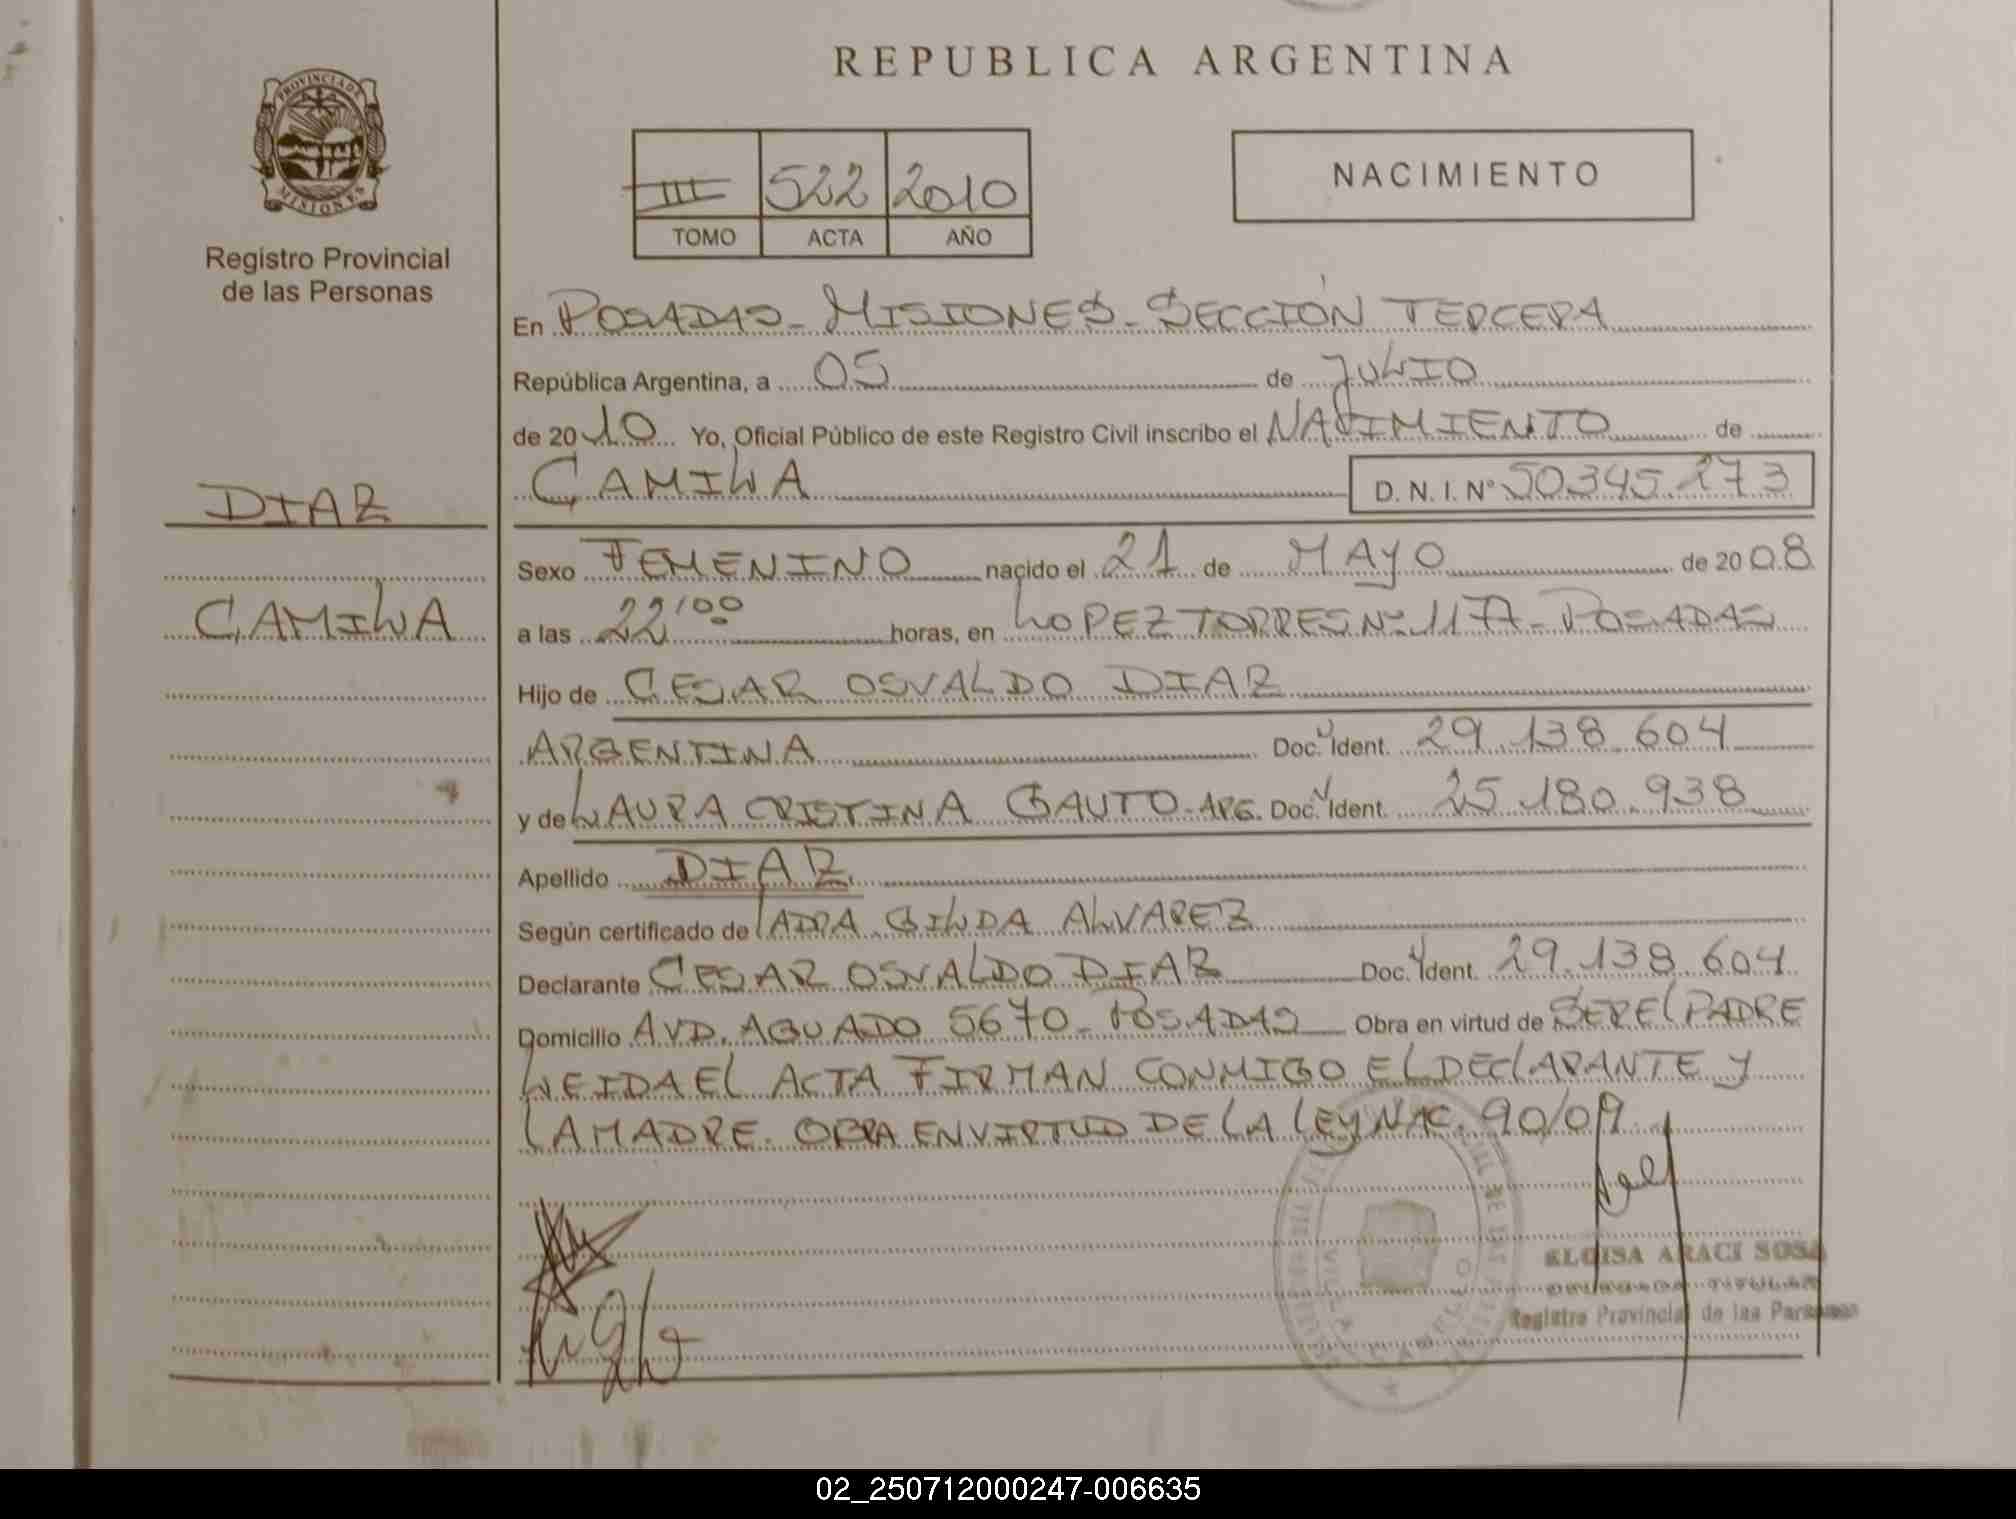 REPUBLICA ARGENTINA
PROVINCIA DE
MISIONES
Registro Provincial
de las Personas
III 522 2010
TOMO ACTA AÑO
NACIMIENTO
En POSADAS - MISIONES - SECCIÓN TERCERA
República Argentina, a 05 de JULIO
de 2010 Yo, Oficial Público de este Registro Civil inscribo el NACIMIENTO de
CAMILA D. N. I. Nº 50345273
DIAZ
CAMILA
Sexo FEMENINO nacido el 21 de MAYO de 2008
a las 22'00 horas, en LOPEZ TORRES Nº 1177 - POSADAS
Hijo de CESAR OSVALDO DIAZ
ARGENTINA Doc. Ident. 29.138.604
y de LAURA CRISTINA GAUTO - ARG. Doc. Ident. 25.180.938
Apellido DIAZ
Según certificado de GILDA ALVAREZ
Declarante CESAR OSVALDO DIAZ Doc. Ident. 29.138.604
Domicilio AVD. AGUADO 5670 - POSADAS Obra en virtud de SER EL PADRE
LEIDA EL ACTA FIRMAN CONMIGO EL DECLARANTE Y
LA MADRE. OBRA EN VIRTUD DE LA LEY NAC. 90/09
ELOISA ARACI SOSA
DELEGADA TITULAR
Registro Provincial de las Personas
02_250712000247-006635